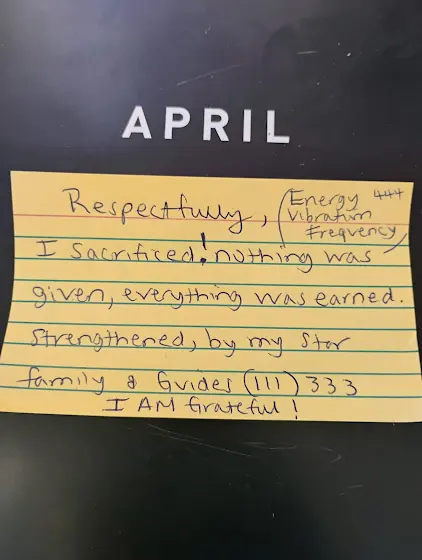 APRIL
Respectfully, (Energy 444
Vibration
Frequency)
I Sacrificed! nothing was
given, everything was earned.
Strengthened, by my Star
family & Guides (111) 333
I AM Grateful!